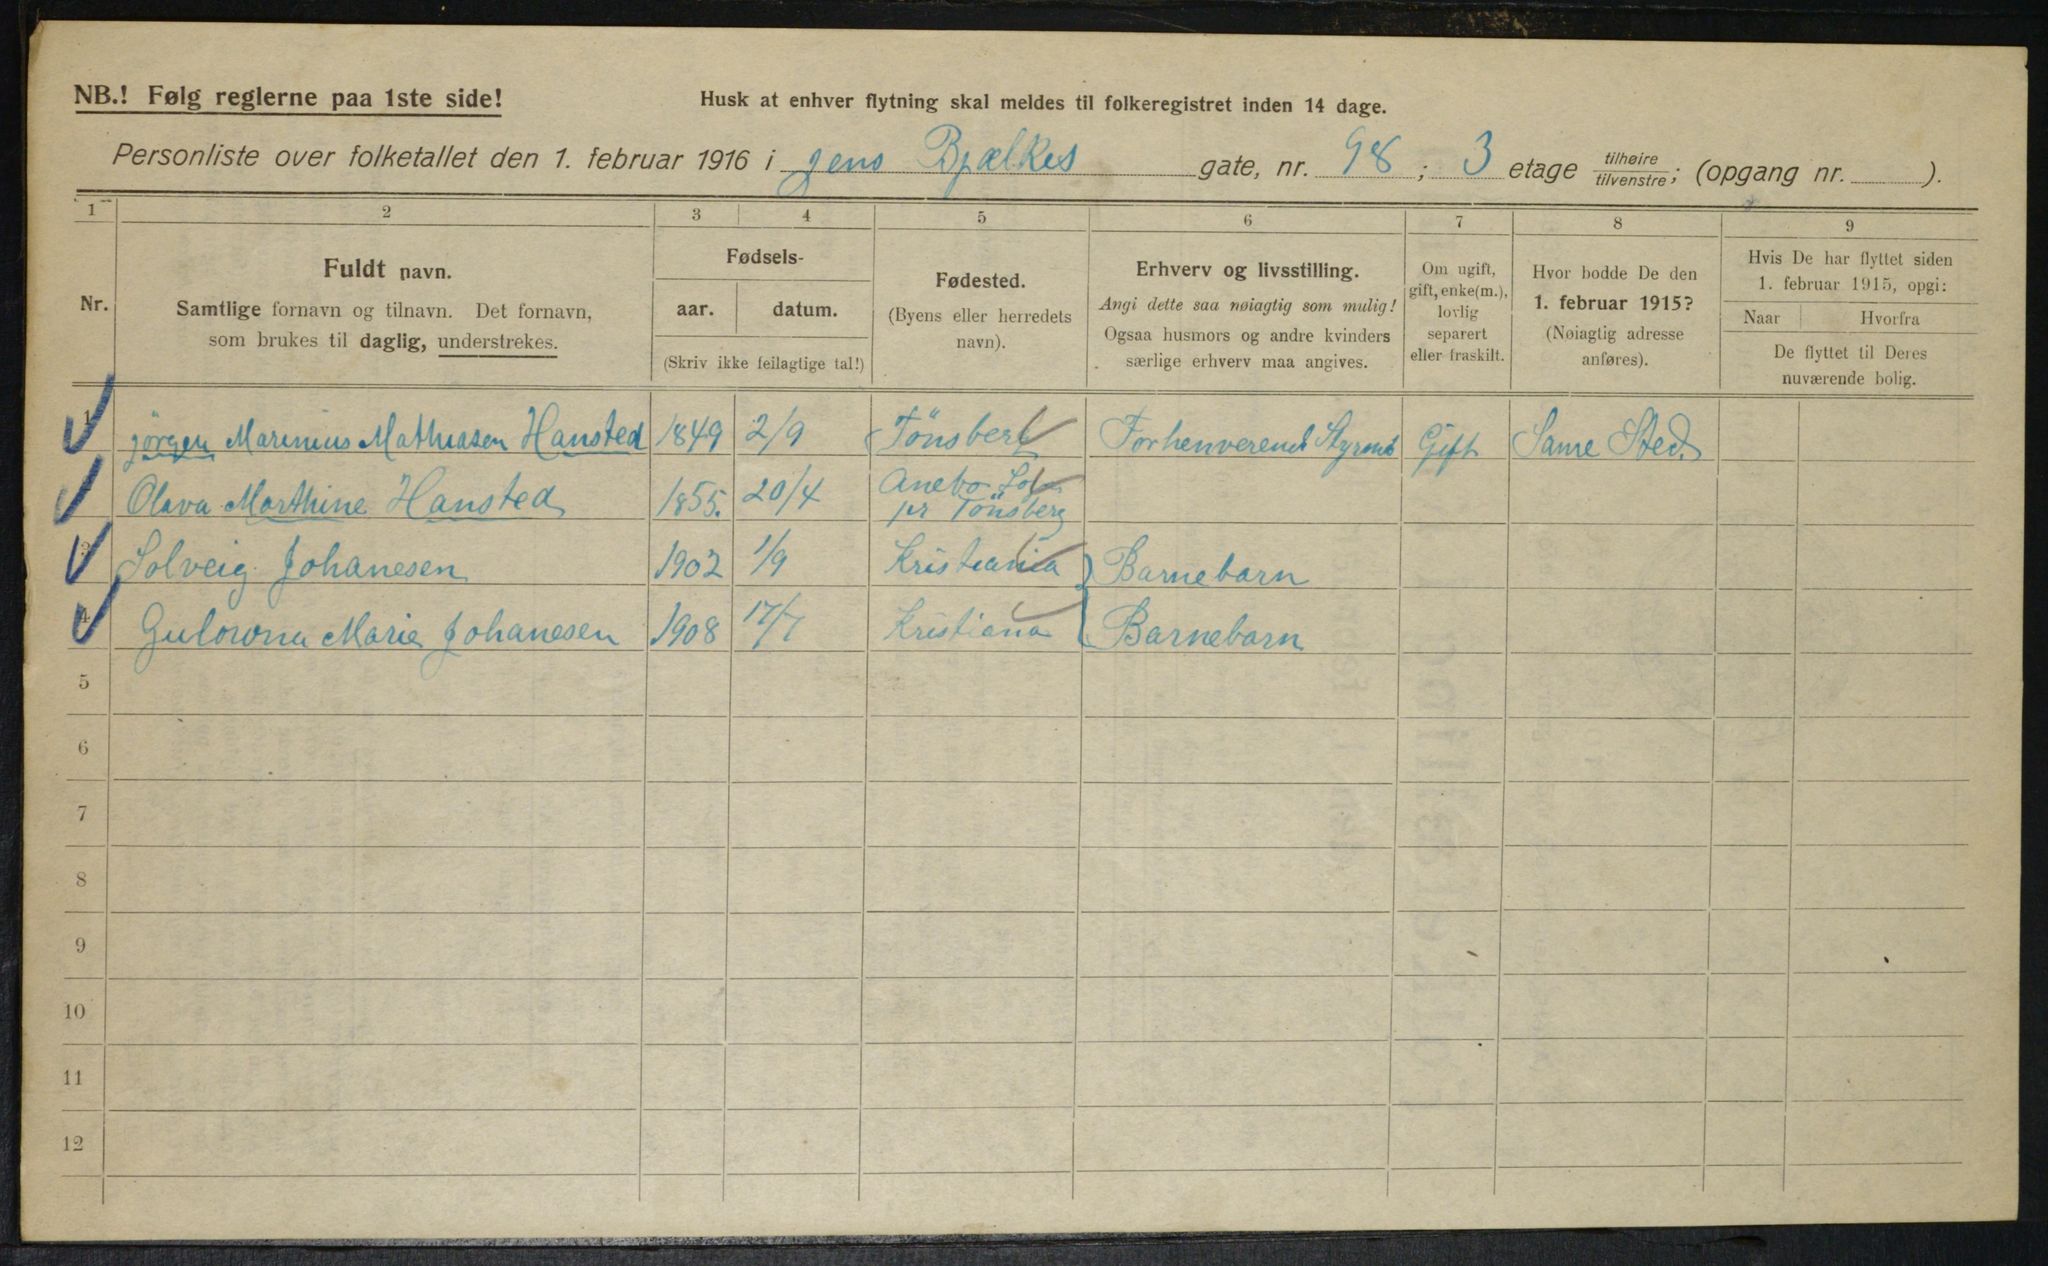 NB.! Følg reglerne paa 1ste side!
Husk at enhver flytning skal meldes til folkeregistret inden 14 dage.
Personliste over folketallet den 1. februar 1916 i Jens Bjælkes gate, nr. 98 ; 3 etage tilhøire tilvenstre; (opgang nr. ).
1 2 3 4 5 6 7 8 9
Nr.
Fuldt navn.
Samtlige fornavn og tilnavn. Det fornavn,
som brukes til daglig, understrekes.
Fødsels-
aar. datum.
(Skriv ikke feilagtige tal!)
Fødested.
(Byens eller herredets
navn).
Erhverv og livsstilling.
Angi dette saa nøiagtig som mulig!
Ogsaa husmors og andre kvinders
særlige erhverv maa angives.
Om ugift,
gift, enke(m.),
lovlig
separert
eller fraskilt.
Hvor bodde De den
1. februar 1915?
(Nøiagtig adresse
anføres).
Hvis De har flyttet siden
1. februar 1915, opgi:
Naar Hvorfra
De flyttet til Deres
nuværende bolig.
1 Jörgen Marinius Mathiasen Hansted 1849 2/9 Tönsberg Forhenverend Styrmd Gift Same Sted
Olava Marthine Hansted 1855. 20/4 Anebo
pr Tönsberg
3 Solveig Johanesen 1902 1/9 Kristiania Barnebarn
4 Gulowna Marie Johanesen 1908 17/7 Kristiana Barnebarn
5
6
7
8
9
10
11
12